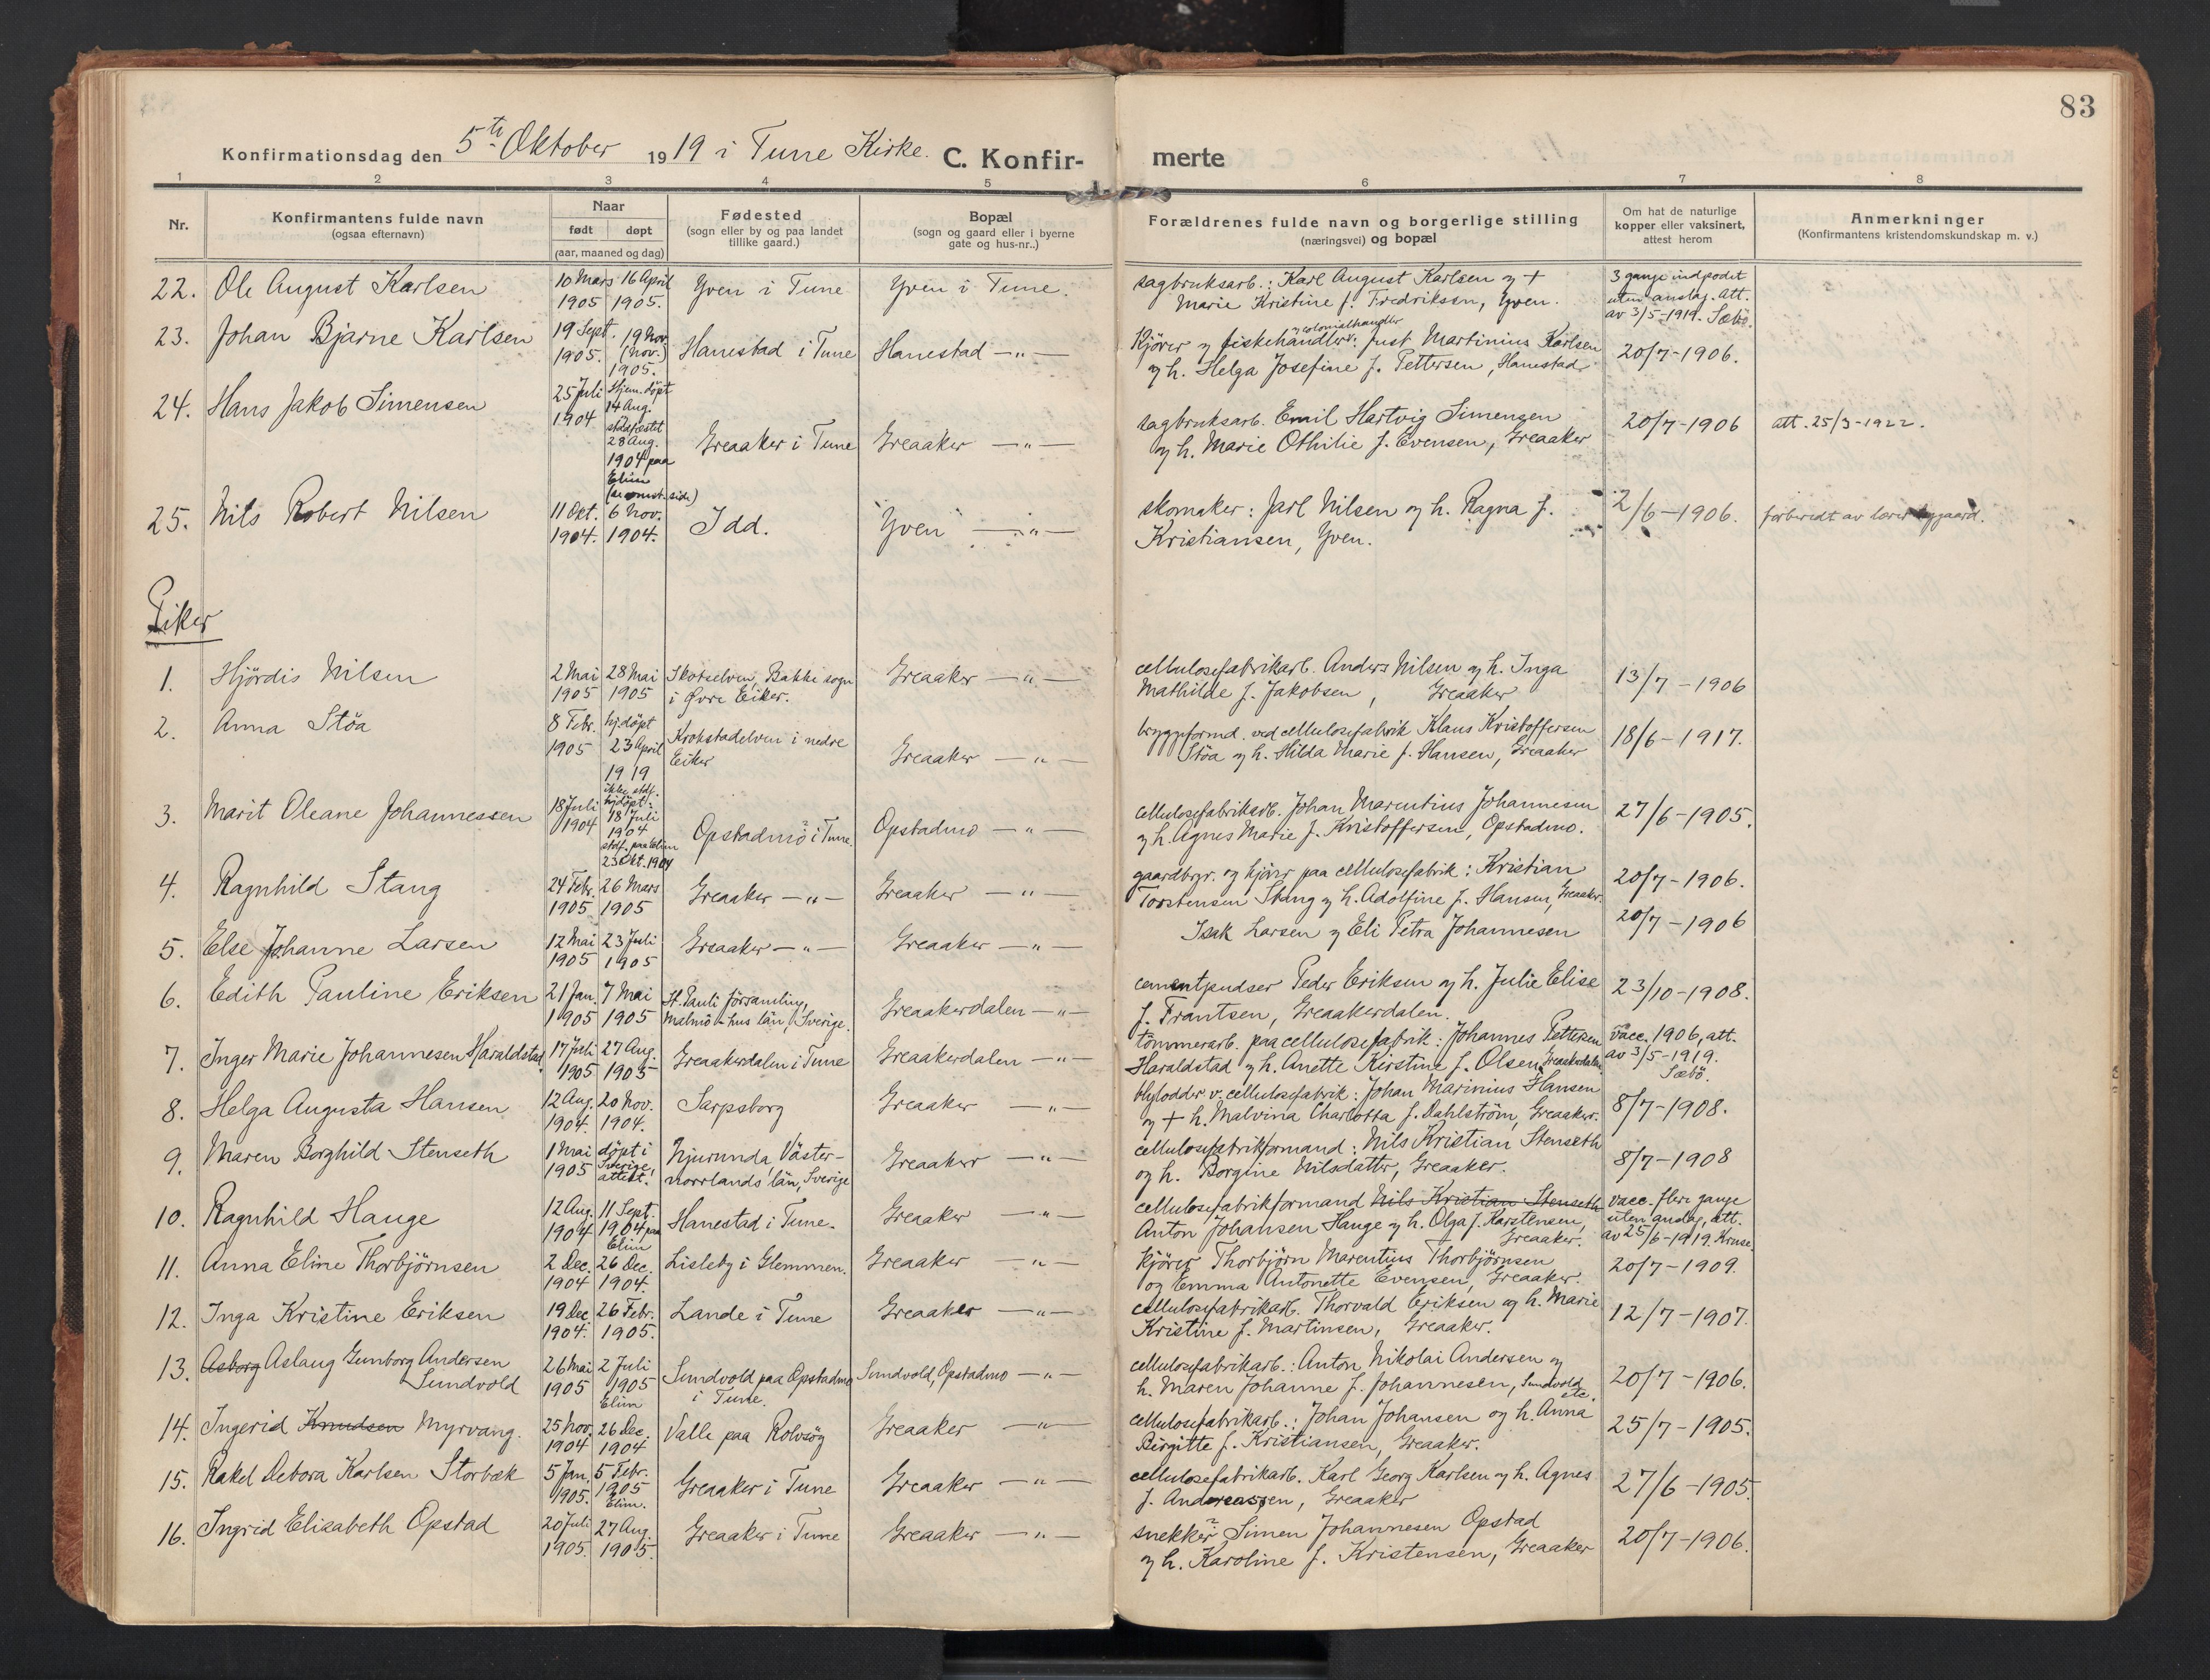 83
Konfirmationsdag den 5te Oktober 1919 i Tune Kirke. C. Konfir-merte
1 2 3 4 5 6 7 8
Nr. Konfirmantens fulde navn (ogsaa efternavn) Naar født døpt (aar, maaned og dag) Fødested (sogn eller by og paa landet tillike gaard.) Bopæl (sogn og gaard eller i byerne gate og hus-nr..) Forældrenes fulde navn og borgerlige stilling (næringsvei) og bopæl Om hat de naturlige kopper eller vaksinert, attest herom Anmerkninger (Konfirmantens kristendomskundskap m. v.)
22. Ole August Karlsen 10 Mars 1905 16 April 1905. Yven i Tune Yven i Tune. sagbruksarb.: Karl August Karlsen og + Marie Kristine f. Fredriksen, Yven. 3 gange indpodet uten anslag. Att. av 3/5-1919. Sæbö.
23. Johan Bjarne Karlsen 19 Sept. 1905. 19 Nov. (Nov.) 1905. Hanestad i Tune Hanestad —„— Kjörer og fiskehandler og colonialhandler: Just Martinius Karlsen og h. Helga Josefine f. Pettersen, Hanestad 20/7-1906.
24. Hans Jakob Simensen 25 Juli 1904 Hjem.döpt 14 Aug. stadfæstet 28 Aug. 1904 paa Elim Greaaker i Tune Greaaker —„— sagbruksarb. Emil Hartvig Simensen og h. Marie Othilie f. Evensen, Greaaker 20/7-1906 att. 25/3-1922.
25. Nils Robert Nilsen 11 Okt. 1904. 6 Nov. 1904. Idd. Yven —„— skomaker: Jarl Nilsen og h. Ragna f. Kristiansen, Yven. 2/6-1906. forberedt av lærer
Piker
1. Hjördis Nilsen 2 Mai 1905 28 Mai 1905 Skotselven, Bakke sogn i Øvre Eiker. Greaaker —„— cellulosefabrikarb. Anders Nilsen og h. Inga Mathilde f. Jakobsen, Greaaker 13/7-1906
2. Anna Stöa 8 Febr. 1905 hj.döpt 23 April 1919 Krokstadelven i nedre Eiker Greaaker —„— bryggeformd. ved cellulosefabrik Klaus Kristoffersen Stöa og h. Hilda Marie f. Hansen, Greaaker 18/6-1917.
3. Marit Oleane Johannessen 18 Juli 1904 hjdöpt: 18 Juli 1904 stdf. paa Elim 23 Okt. 1904 Opstadmo i Tune. Opstadmo —„— cellulosefabrikarb. Johan Marentius Johannesen og h. Agnes Marie f. Kristoffersen, Opstadmo. 27/6-1905.
4. Ragnhild Stang 24 Febr. 1905 26 Mars 1905 Greaaker —„— Greaaker —„— gaardbrgr. og kjörer paa cellulosefabrik: Kristian Torstensen Stang og h. Adolfine f. Hansen, Greaaker. 20/7-1906.
5. Else Johanne Larsen 12 Mai 1905 23 Juli 1905 Greaaker —„— Greaaker —„— Isak Larsen og Eli Petra Johannesen 20/7-1906
6. Edith Pauline Eriksen 21 Jan. 1905 7 Mai 1905 St. Pauli församling, Malmö-hus län, Sverige. Greaakerdalen —„— cementpudser Peder Eriksen og h. Julie Elise f. Frantsen, Greaakerdalen. 23/10-1908.
7. Inger Marie Johannesen Haraldstad. 17 Juli 1905 27 Aug. 1905 Greaakerdalen i Tune Greaakerdalen —„— tömmerarb. paa cellulosefabrik: Johannes Pettersen Haraldstad og h. Anette Kirstine f. Olsen, Greaakerdalen vacc. 1906, att. av 3/5-1919. Sæbö.
8. Helga Augusta Hansen 12 Aug. 1904. 20 Nov. 1904. Sarpsborg Greaaker —„— blylodder v. cellulosefabrik: Johan Marinius Hansen og + h. Malvina Charlotta f. Dahlström, Greaaker. 8/7-1908.
9. Maren Borghild Stenseth 1 Mai 1905 döpt i Sverige, attest. Njurunda Väster-norrlands län, Sverige Greaaker —„— cellulosefabrikformand: Nils Kristian Stenseth og h. Borgine Nilsdatter, Greaaker. 8/7-1908
10. Ragnhild Hauge 12 Aug. 1904 11 Sept. 1904 paa Elim Hanestad i Tune. Greaaker —„— cellulosefabrikformand Nils Kristian Stenseth Anton Johansen Hauge og h. Olga f. Karstensen, Greaaker. vacc. flere gange uten anslag, att. av 25/6-1919. Kruse.
11. Anna Eline Thorbjörnsen 2 Dec. 1904 26 Dec. 1904. Lisleby i Glemmen. Greaaker —„— kjörer Thorbjörn Marentius Thorbjörnsen og Emma Antonette Evensen, Greaaker. 20/7-1909.
12. Inga Kristine Eriksen 19 Dec. 1904. 26 Febr. 1905. Lande i Tune Greaaker —„— cellulosefabrikarb. Thorvald Eriksen og h. Marie Kristine f. Martinsen, Greaaker. 12/7-1907.
13. Asborg Aslaug Gunborg Andersen Sundvold 26 Mai 1905 2 Juli 1905 Elim Sundvold paa Opstadmo i Tune. Sundvold, Opstadmo —„— cellulosefabrikarb.: Anton Nikolai Andersen og h. Maren Johanne f. Johannesen, Sundvold etc. 20/7-1906.
14. Ingerid Knudsen Myrvang. 25 Nov. 1904 26 Dec. 1904 Valle paa Rolvsöy Greaaker —„— cellulosefabrikarb.: Johan Johansen og h. Anna Birgitte f. Kristiansen, Greaaker. 25/7-1905.
15. Rakel Debora Karlsen Storbæk 5 Jan. 1905. 5 Febr. 1905 Elim. Greaaker i Tune Greaaker —„— cellulosefabrikarb. Karl Georg Karlsen og h. Agnes f. Andreassen, Greaaker 27/6-1905.
16. Ingrid Elisabeth Opstad 20 Juli 1905. 27 Aug. 1905. Greaaker i Tune Greaaker —„— snekker Simen Johannesen Opstad og h. Karoline f. Kristensen, Greaaker 20/7-1906.